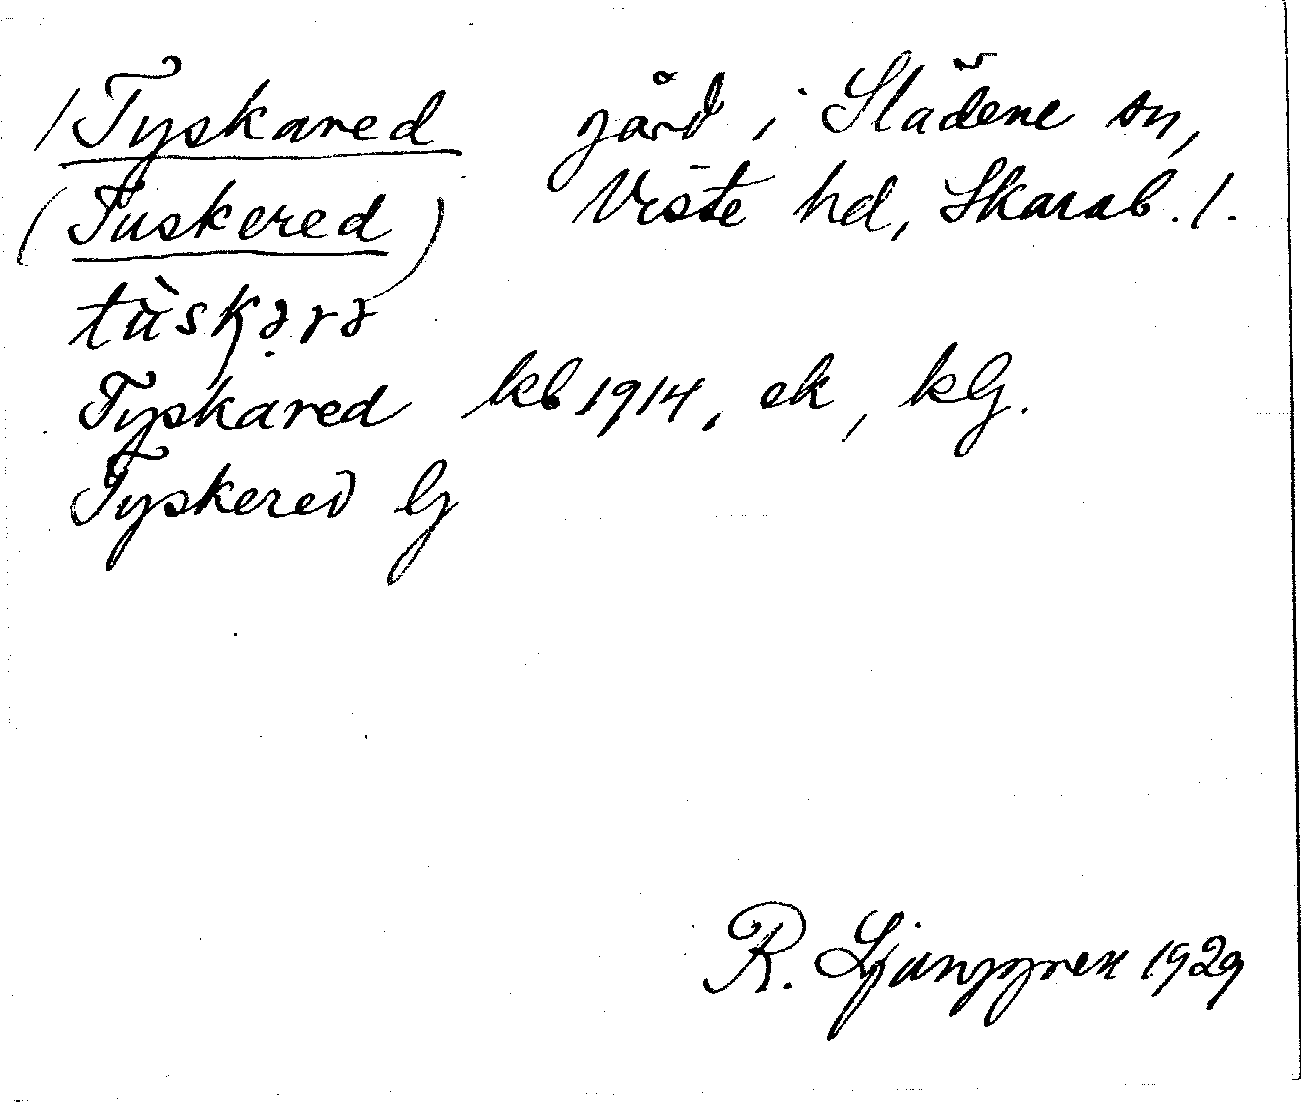 /Tyskared gård i Slädene sn,
(Tuskered) Viste hd, Skarab. l.
tùskərə
Tyskared kb 1914, ek, kG.
Tyskered G
R. Ljunggren 1929